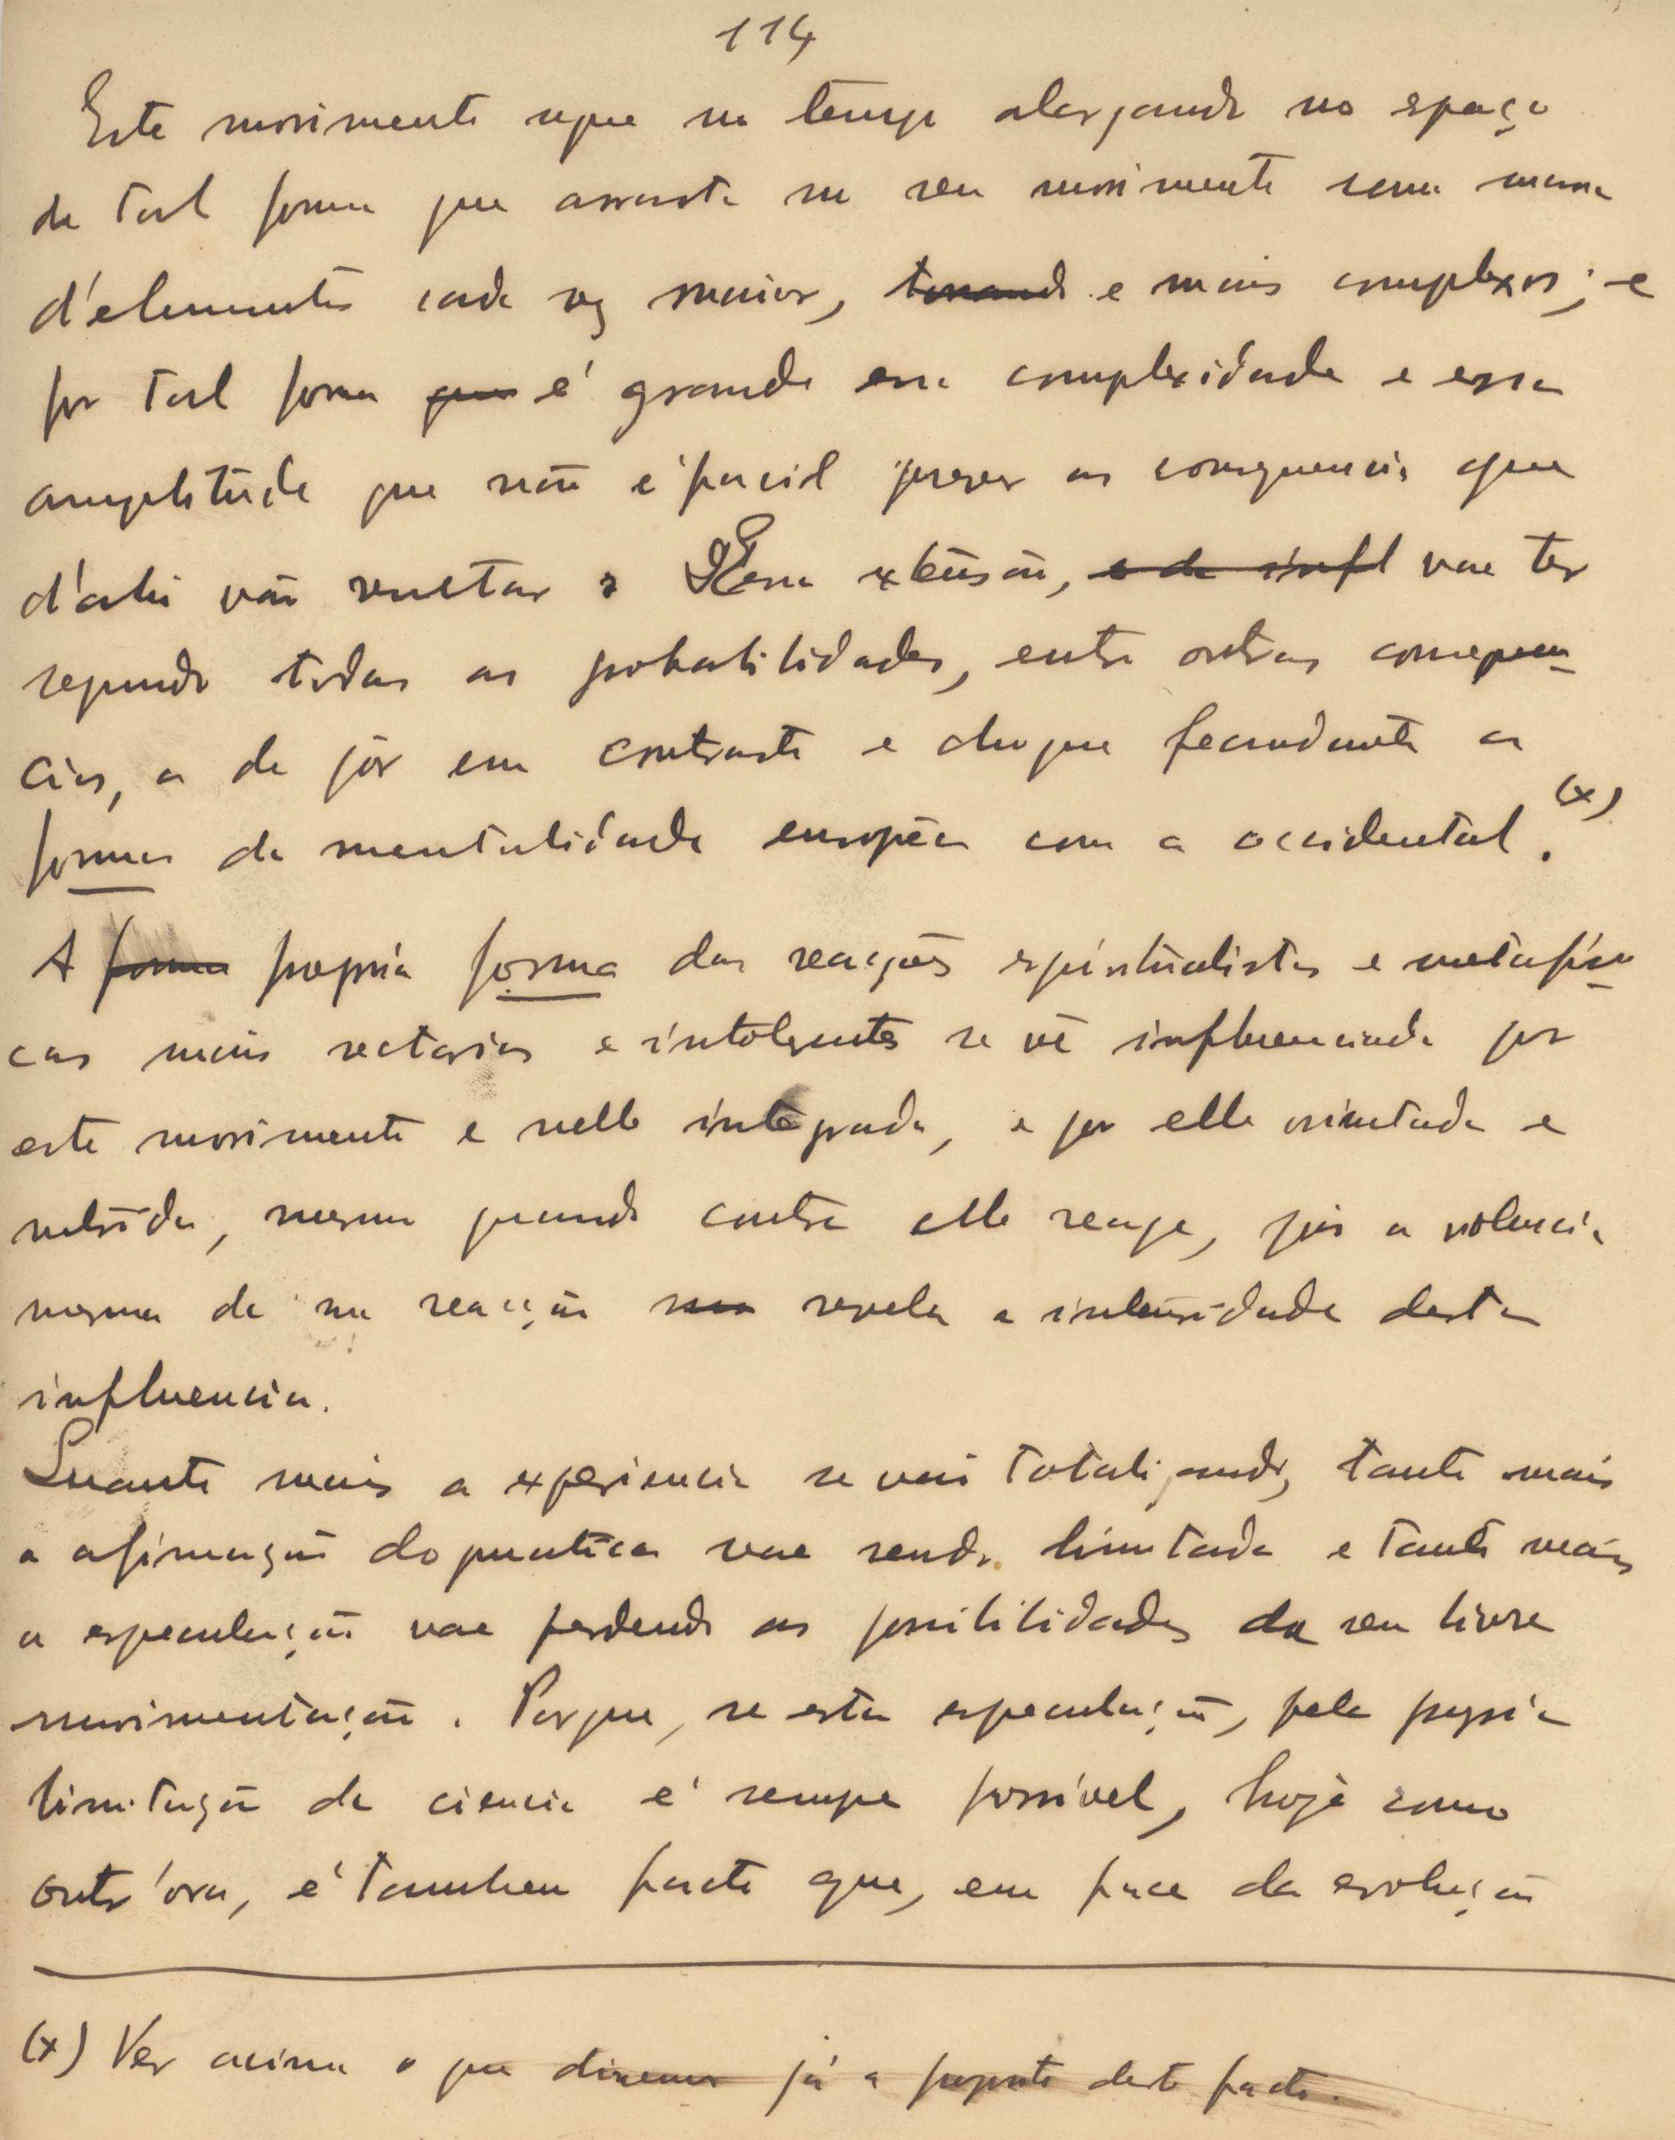 114
Este movimento segue no tempo alargando no espaço
de tal forma que arrasta no seu movimento uma massa
d'elementos cada vez maior, tornando e mais complexos; e
por tal forma que é grande essa complexidade e essa
amplitude que não é facil prever as consequencias que
d'ahi vão resultar. Essa extensão, e da infl vae ter
segundo todas as probabilidades, entre outras consequen-
cias, a de pôr em contraste e choque fecundante as
formas de mentalidade européa com a occidental. (x)
A forma propria forma das reacções espiritualistas e metafisi-
cas mais sectarias e intolerantes se vê influenciada por
este movimento e nelle integrada, e por elle orientada e
nutrida, mesmo quando contra elle reage, pois a violencia
mesma de sua reacção revela a intensidade desta
influencia.
Quanto mais a experiencia se vai totalizando, tanto mais
a afirmação dogmatica vae sendo limitada e tanto mais
a especulação vae perdendo as possibilidades da seu livre
movimentação. Porque, se esta especulação, pela propria
limitação da ciencia é sempre possivel, hoje como
outr'ora, é tambem facto que, em face da evolução
(x) Ver acima o que dissemos já a proposito deste facto.